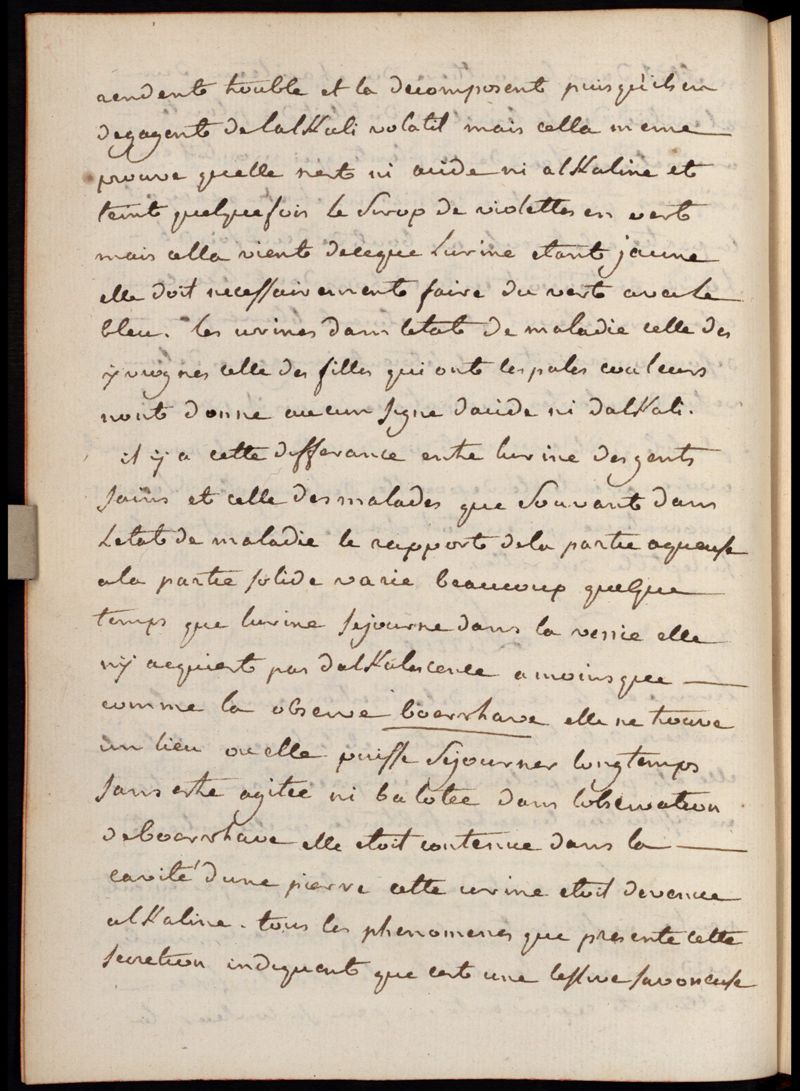 rendent trouble et la decomposent puisqu'ils en
degagent de lalkali volatil mais cella meme
prouve quelle nest ni acide ni alkaline et
teint quelquefois le Sirop de violettes en vert
mais cella vient deceque Lurine etant jaune
elle doit necessairement faire du vert avec le
bleu. les urines dans letat de maladie celle des
yvrognes celle des filles qui ont les pales couleurs
nont donne aucun signe dacide ni dalkali.
il y a cette differance entre lurine des gents
sains et celle des malades que Souvant dans
Letat de maladie le rapport de la partie aqueuse
a la partie solide varie beaucoup quelque
temps que lurine sejourne dans la vessie elle
n'y acquiert pas dalkalescence a moins que
comme la observe boerrhave elle ne trouve
un lieu ou elle puisse Sejourner longtemps
sans estre agitee ni balotee dans lobservation
de boerrhave elle etoit contenue dans la
cavité dune pierre cette urine etoit devenue
alkaline. tous les phenomenes que presente cette
secretion indiquent que cest une lessive savoneuse